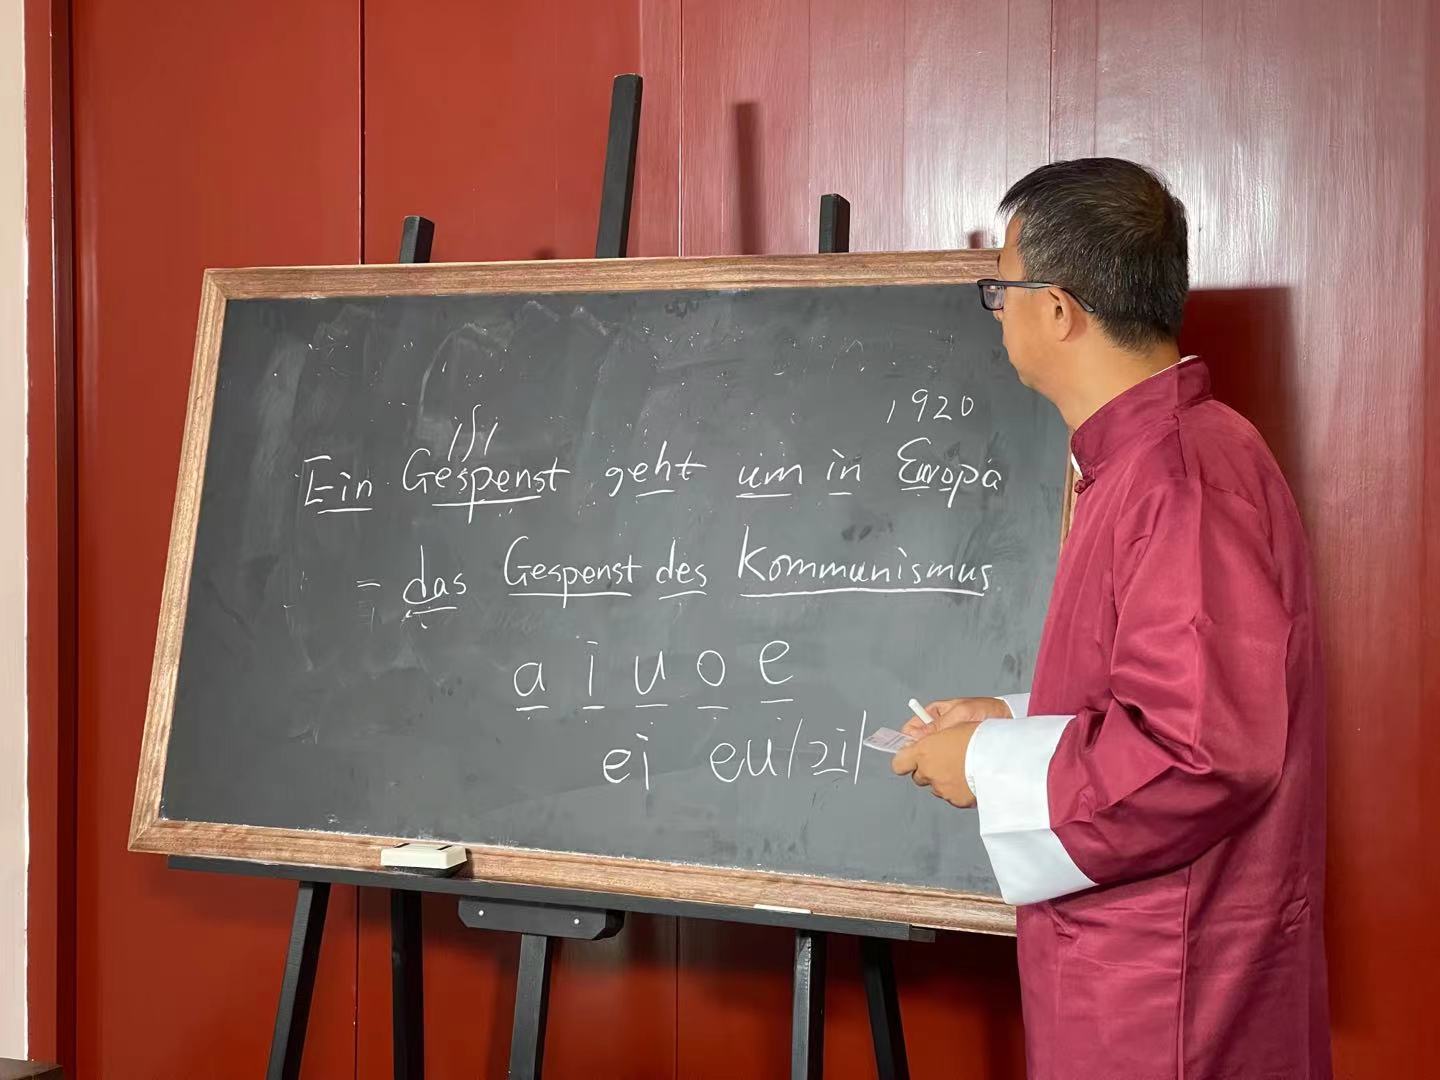 1920
/ʃ/
Ein Gespenst geht um in Europa
= das Gespenst des Kommunismus
a i u o e
ei eu/ɔi/